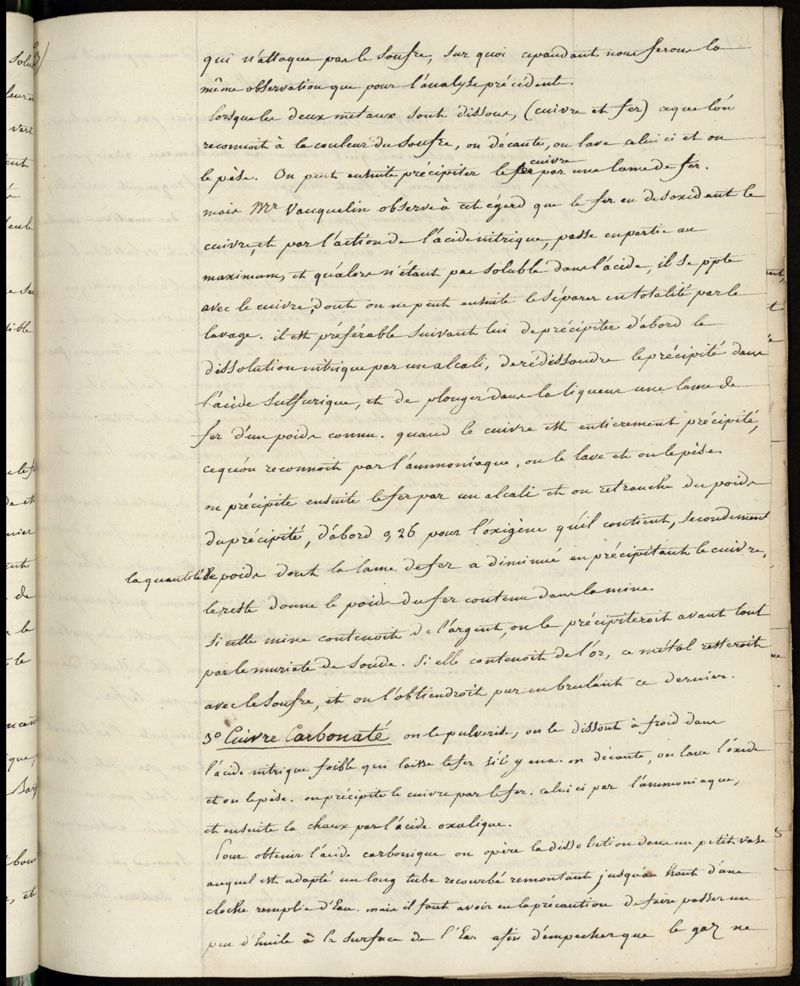 qui n'attaque pas le soufre, sur quoi cependant nous ferons la
même observation que pour l'analyse précédente.
Lorsque les deux métaux sont dissous, (cuivre et fer) ce que l'on
reconnoit à la couleur du soufre, on décante, on lave celui ci et on
le pèse. On peut ensuite précipiter le cuivre par une lame de fer.
mais Mr Vauquelin observe à cet égard que le fer en desoxidant le
cuivre, et par l'action de l'acide nitrique, passe en partie au
maximum, et qu'alors n'étant pas soluble dans l'acide, il se ppte
avec le cuivre, dont on ne peut ensuite le séparer en totalité par le
lavage. il est préférable suivant lui de précipiter d'abord la
dissolution nitrique par un alcali, de rédissoudre le précipité dans
l'acide sulfurique, et de plonger dans la liqueur une lame de
fer d'un poids connu. quand le cuivre est entièrement précipité,
ce qu'on reconnoit par l'ammoniaque, on le lave et on le pèse.
on précipite ensuite le fer par un alcali et on retranche du poids
du précipité, d'abord 0,26 pour l'oxigène qu'il contient, secondement
la quantité de poids dont la lame de fer a diminué en précipitant le cuivre,
le reste donne le poids du fer contenu dans la mine.
Si cette mine contenoit de l'argent, on le précipiteroit avant tout
par le muriate de soude. Si elle contenoit de l'or, ce métal resteroit
avec le soufre, et on l'obtiendroit pur en brulant ce dernier.
3° Cuivre Carbonaté on le pulverise, on le dissout à froid dans
l'acide nitrique foible qui laisse le fer s'il y en a. on décante, on lave l'oxide
et on le pèse. on précipite le cuivre par le fer. celui ci par l'ammoniaque,
et ensuite la chaux par l'acide oxalique.
Pour obtenir l'acide carbonique on opère la dissolution dans un petit vase
auquel est adapté un long tube recourbé remontant jusqu'au haut d'une
cloche remplie d'Eau. mais il faut avoir eu la précaution de faire passer un
peu d'huile à la surface de l'Eau afin d'empecher que le gaz ne